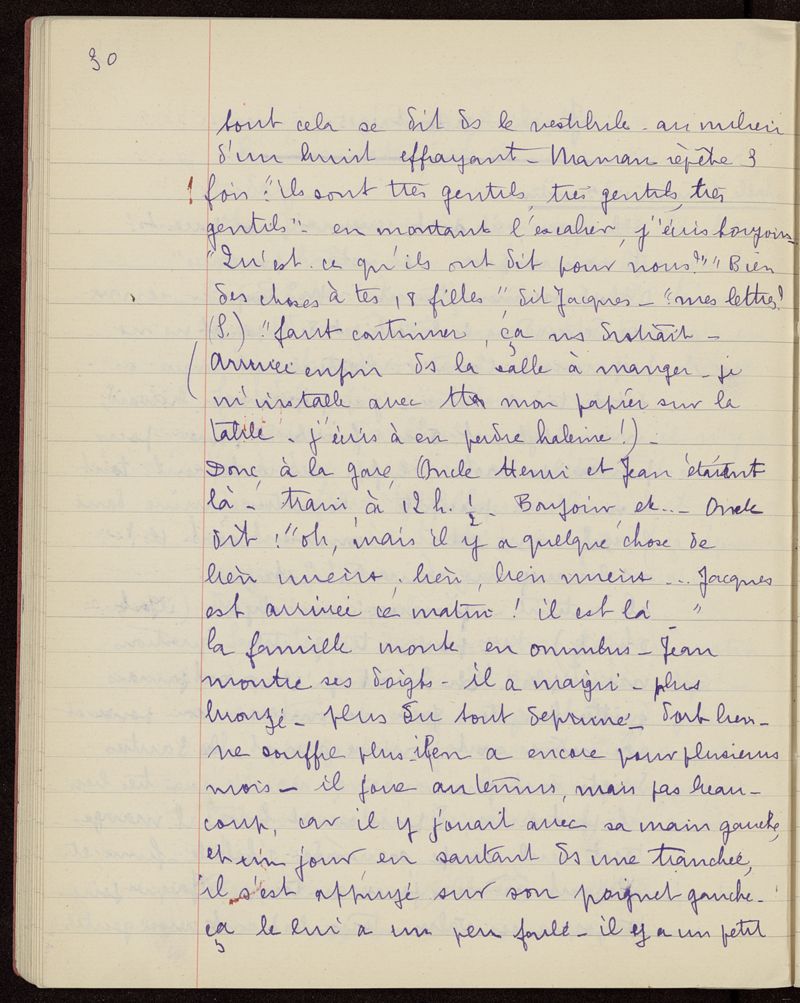 30
tout cela se dit ds le vestibule - au milieu
d'un bruit effrayant - Maman répète 3
! fois : "ils sont très gentils, très gentils, très
gentils" - en montant l'escalier, j'écris toujours -
"Qu'est-ce qu'ils ont dit pour nous?" "Bien
des choses à tes 18 filles" dit Jacques - "mes lettres!
(S.) "faut continuer, ça ns distrait -
(Arrivée enfin ds la salle à manger - je
m'installe avec mon papier sur la
table - j'écris à en perdre haleine!) -
Donc, à la gare, Oncle Henri et Jean étaient
là - train à 12h. ½ - Bonjour, etc... - Oncle
dit : "oh, mais il y a quelque chose de
bien mieux, bien, bien mieux ... Jacques
est arrivé ce matin ! il est là - "
la famille monte en omnibus - Jean
montre ses doigts - il a maigri - plus
bronzé - plus du tout déprimé - dort bien -
ne souffre plus - il en a encore pour plusieurs
mois - il joue au tennis, mais pas beau-
coup, car il y jouait avec sa main gauche,
et un jour, en sautant ds une tranchée,
il s'est appuyé sur son poignet gauche -
ça le lui a un peu foulé - il y a un petit